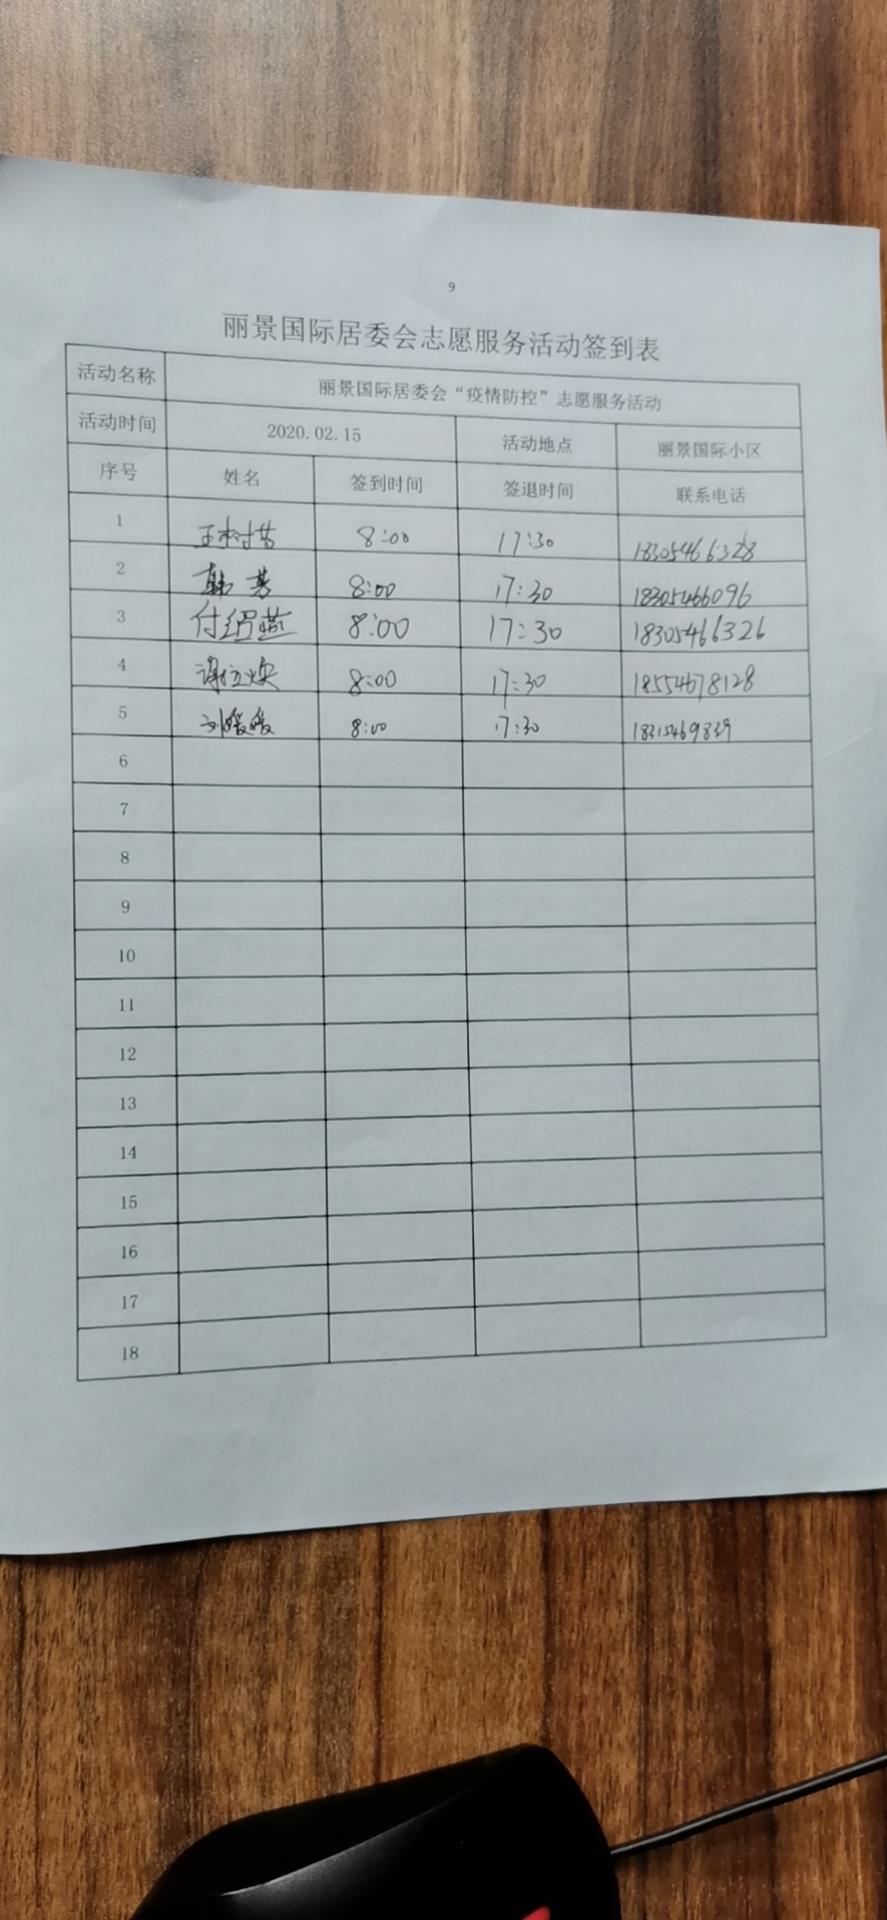 9
丽景国际居委会志愿服务活动签到表
活动名称 丽景国际居委会“疫情防控”志愿服务活动
活动时间 2020.02.15 活动地点 丽景国际小区
序号 姓名 签到时间 签退时间 联系电话
1 8:00 17:30 18305466328
2 韩芳 8:00 17:30 18305466096
3 付绍燕 8:00 17:30 18305466326
4 8:00 17:30 18554678128
5 刘媛媛 8:00 17:30 18315469839
6
7
8
9
10
11
12
13
14
15
16
17
18